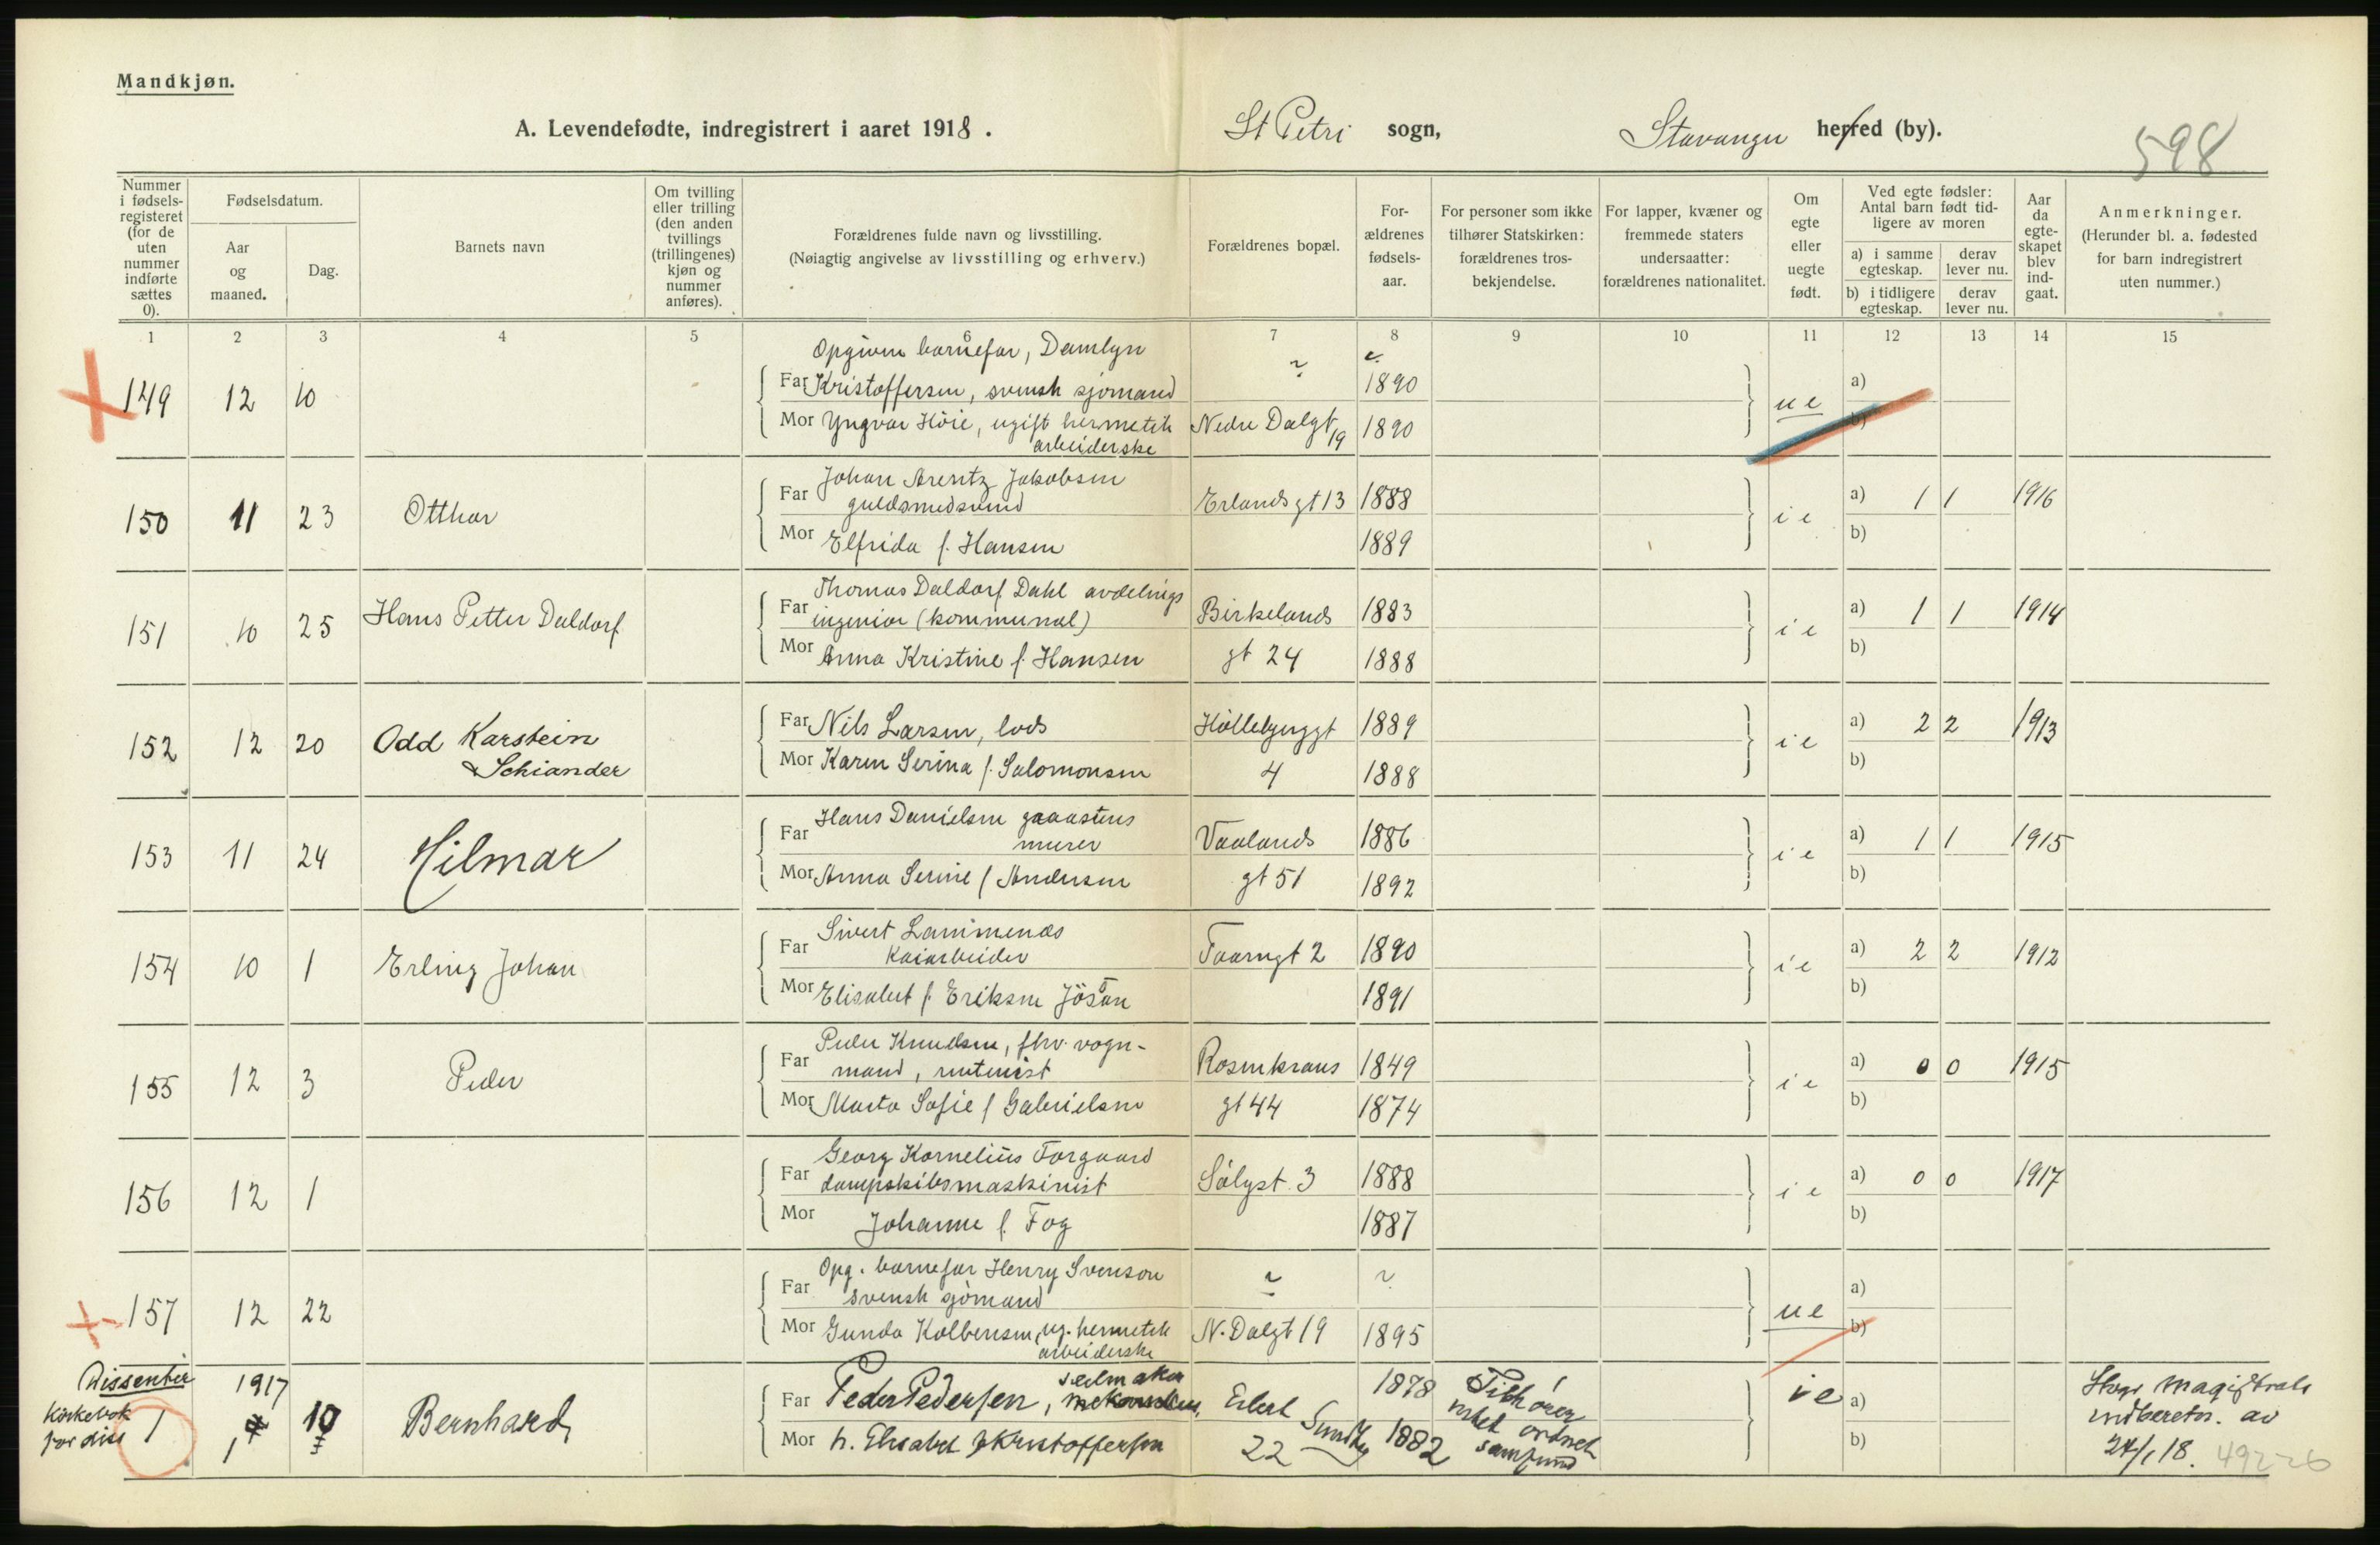 Mandkjøn.
A. Levendefødte, indregistrert i aaret 1918 . St Petri sogn, Stavanger herred (by). 598
Nummer i fødsels-registeret (for de uten nummer indførte sættes 0).
Fødselsdatum.
Aar og maaned.
Dag.
Barnets navn
Om tvilling eller trilling (den anden tvillings (trillingenes) kjøn og nummer anføres).
Forældrenes fulde navn og livsstilling.
(Nøiagtig angivelse av livsstilling og erhverv.)
Forældrenes bopæl.
For-ældrenes fødsels-aar.
For personer som ikke tilhører Statskirken: forældrenes tros-bekjendelse.
For lapper, kvæner og fremmede staters undersaatter: forældrenes nationalitet.
Om egte eller uegte født.
Ved egte fødsler: Antal barn født tid-ligere av moren
a) i samme egteskap. derav lever nu.
b) i tidligere egteskap. derav lever nu.
Aar da egte-skapet blev ind-gaat.
Anmerkninger.
(Herunder bl. a. fødested for barn indregistrert uten nummer.)
1 2 3 4 5 6 7 8 9 10 11 12 13 14 15
Opgiven barnefar,
149 12 10 Far Kristoffersen, svensk sjömand 1890 ue a)
Mor Yngvar Höie, ugift hermetik Nedre Dalgt 19 1890 b)
arbeiderske
Johan Arentz Jakobsen
150 11 23 Otthar Far guldsmedsvend Erlandsgt 13 1888 ie a) 1 1 1916
Mor Elfrida f. Hansen 1889 b)
Thomas Daldorf Dahl avdelings
151 10 25 Hans Petter Daldorf Far ingeniør (kommunal) Birkelands 1883 ie a) 1 1 1914
Mor Anna Kristine f. Hansen gt 24 1888 b)
152 12 20 Odd Karstein Far Nils Larsen, lods 1889 ie a) 2 2 1913
Schiander Mor Karen Serina f. Salomonsen 4 1888 b)
Hans Danielsen graastens
153 11 24 Hilmar Far murer Vaalands 1886 ie a) 1 1 1915
Mor Anna Serine f Andersen gt 51 1892 b)
Sivert
154 10 1 Erling Johan Far Kaiarbeider 2 1890 ie a) 2 2 1912
Mor Elisabet f. Eriksen 1891 b)
Peder Knudsen, fhv. vogn-
155 12 3 Peder Far mand, rentenist Rosenkrans 1849 ie a) 0 0 1915
Mor Marta Sofie f Gabrielsen gt 44 1874 b)
Georg Kornelius Torgaard
156 12 1 Far dampskibsmaskinist Sölyst 3 1888 ie a) 0 0 1917
Mor Johanne f. Fog 1887 b)
Opg. barnefar Henry Svenson
157 12 22 Far svensk sjömand ue a)
Mor Gunda Kolbensen, ug. hermetik N. Dalgt 19 1895 b)
arbeiderske
Dissenter 1917 seilmaker
Kirkebok for diss 1 10 Bernhard Far Peder Pedersen, 1878 Tilhører ie a)
intet ordnet samfund
Mor h. Elisabet Kristoffersen 22 1882 b)
magistrats
indberetn. av
24/1 18. 492-26